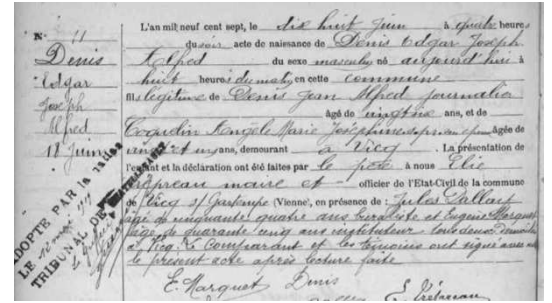 N° 11
Denis
Edgar
Joseph
Alfred
18 Juin
ADOPTÉ PAR la nation
LE
TRIBUNAL DE
L'an mil neuf cent sept, le dix huit Juin à quatre heures
du soir acte de naissance de Denis Edgar Joseph
Alfred du sexe masculin né aujourd'hui à
huit heures du matin en cette commune
fils légitime de Denis Jean Alfred journalier
âgé de vingt ans, et de
Coquelin Angèle Marie Joséphine son épouse âgée de
vingt et un ans, demeurant à Vicq. La présentation de
l'enfant et la déclaration ont été faites par le père à nous Elie
maire et officier de l'Etat-Civil de la commune
de Vicq s/ Gartempe (Vienne), en présence de : Jules Dallay
âgé de cinquante quatre ans et Eugène Marquet
âgé de quarante cinq ans instituteur tous deux
à Vicq. Le comparant et les témoins ont signé avec nous
le présent acte après lecture faite
E. Marquet Denis